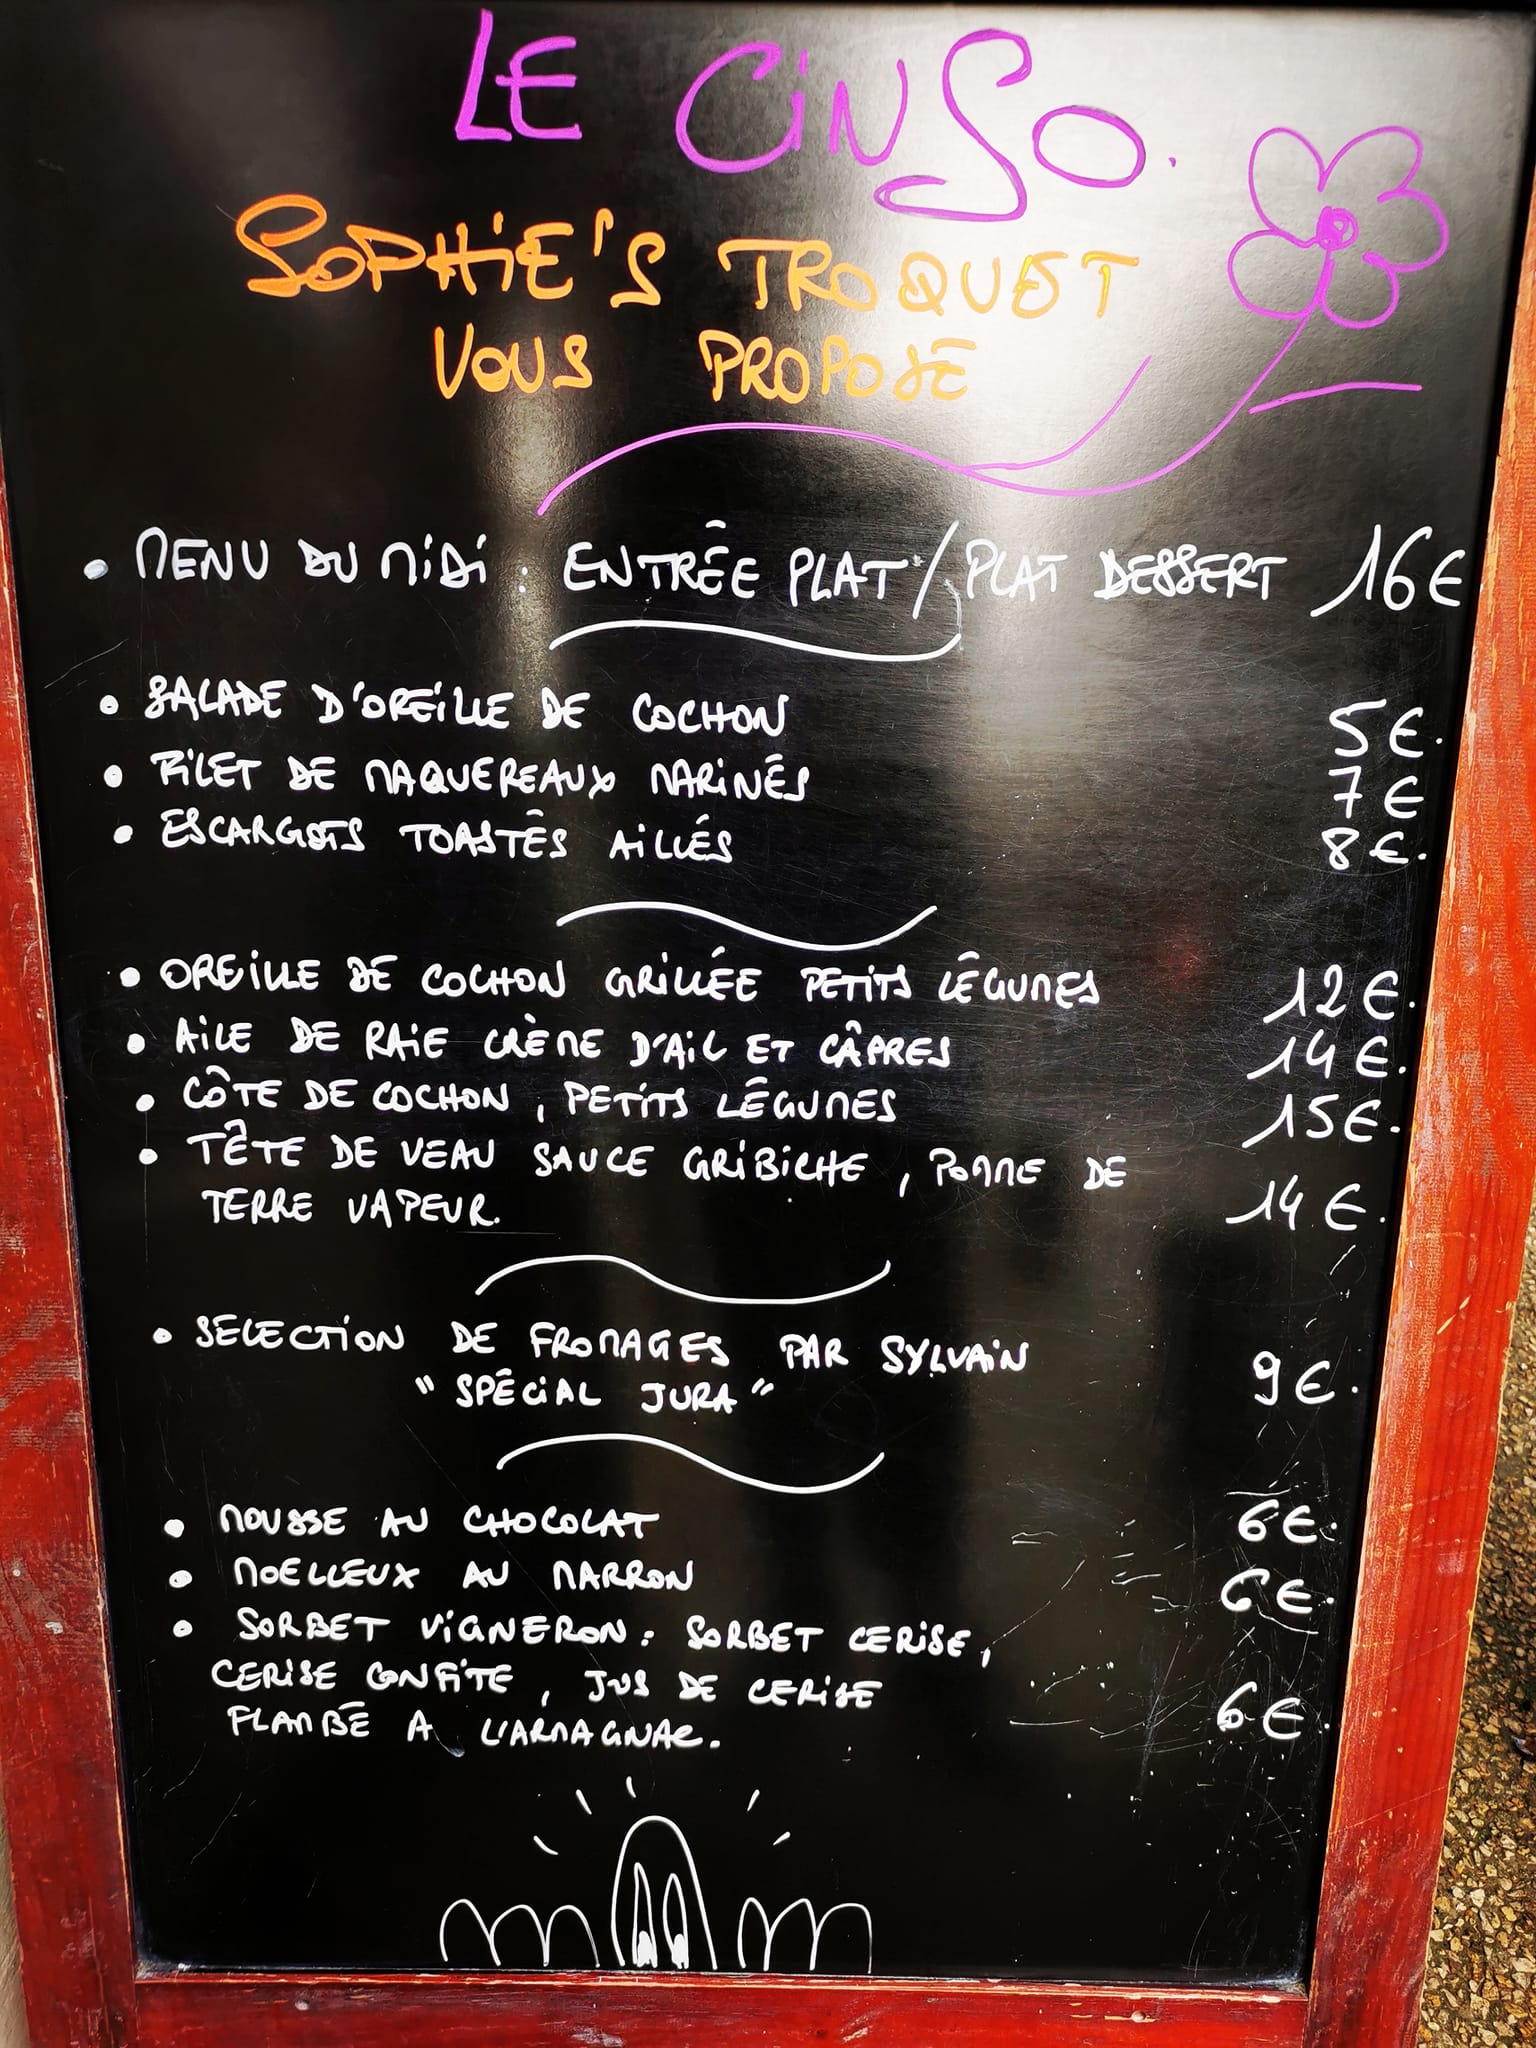 LE CINSO.
SOPHIE'S TROQUET
VOUS PROPOSE
• MENU DU MIDI : ENTRÉE PLAT / PLAT DESSERT 16€
• SALADE D'OREILLE DE COCHON 5€.
• FILET DE MAQUEREAUX MARINÉS 7€
• ESCARGOTS TOASTÉS AILLÉS 8€.
• OREILLE DE COCHON GRILLÉE PETITS LÉGUMES 12€.
• AILE DE RAIE CRÈME D'AIL ET CÂPRES 14€.
• CÔTE DE COCHON, PETITS LÉGUMES 15€.
• TÊTE DE VEAU SAUCE GRIBICHE, POMME DE
TERRE VAPEUR. 14€.
• SELECTION DE FROMAGES PAR SYLVAIN
"SPÉCIAL JURA" 9€.
• MOUSSE AU CHOCOLAT 6€.
• MOELLEUX AU MARRON 6€.
• SORBET VIGNERON : SORBET CERISE,
CERISE CONFITE, JUS DE CERISE
FLAMBÉ A L'ARMAGNAC. 6€.